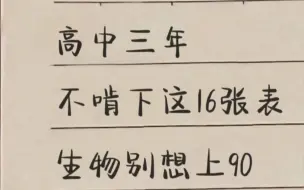 高中三年
不啃下这16张表
生物别想上90